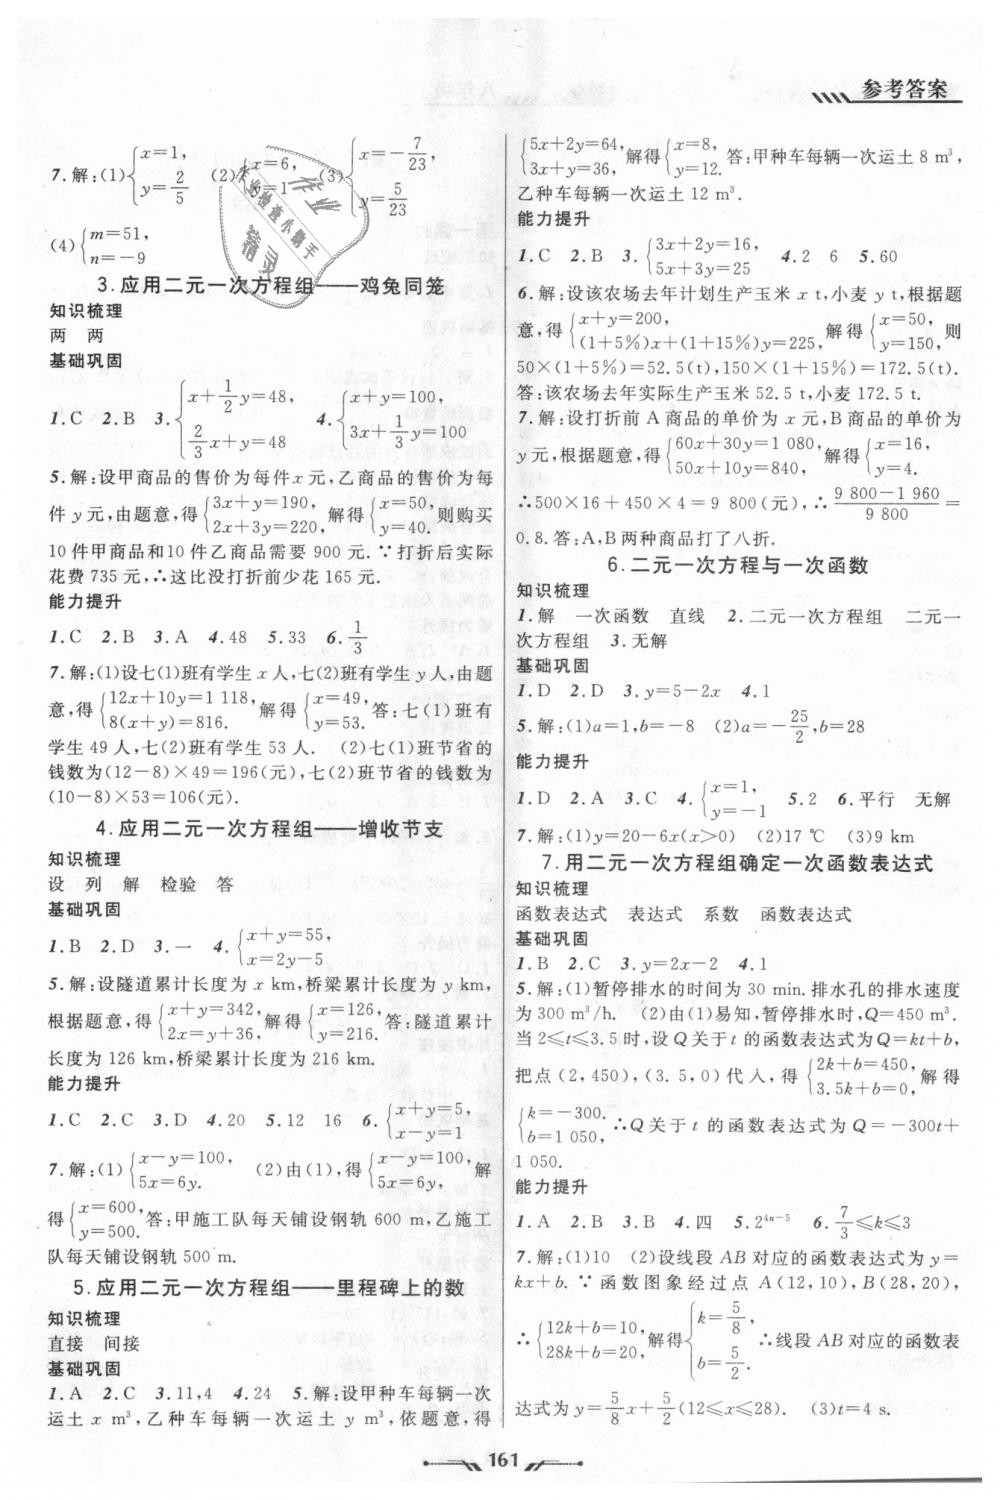 参考答案
7.解:(1){x=1, y=2/5 (2){x=6, y=1 (3){x=-7/23, y=5/23
(4){m=51, n=-9
3.应用二元一次方程组——鸡兔同笼
知识梳理
两 两
基础巩固
1.C 2.B 3.{x+1/2y=48, 2/3x+y=48 4.{x+y=100, 3x+1/3y=100
5.解:设甲商品的售价为每件x元,乙商品的售价为每
件y元,由题意,得{3x+y=190, 2x+3y=220, 解得{x=50, y=40. 则购买
10件甲商品和10件乙商品需要900元.∵打折后实际
花费735元,∴这比没打折前少花165元.
能力提升
1.C 2.B 3.A 4.48 5.33 6.1/3
7.解:(1)设七(1)班有学生x人,七(2)班有学生y人,由题
意,得{12x+10y=1 118, 8(x+y)=816. 解得{x=49, y=53. 答:七(1)班有
学生49人,七(2)班有学生53人. (2)七(1)班节省的
钱数为(12-8)×49=196(元),七(2)班节省的钱数为
(10-8)×53=106(元).
4.应用二元一次方程组——增收节支
知识梳理
设 列 解 检验 答
基础巩固
1.B 2.D 3.一 4.{x+y=55, x=2y-5
5.解:设隧道累计长度为x km,桥梁累计长度为y km,
根据题意,得{x+y=342, 2x=y+36, 解得{x=126, y=216. 答:隧道累计
长度为126 km,桥梁累计长度为216 km.
能力提升
1.C 2.C 3.D 4.20 5.12 16 6.{x+y=5, x-y=1
7.解:(1){x-y=100, 5x=6y. (2)由(1),得{x-y=100, 5x=6y, 解
得{x=600, y=500. 答:甲施工队每天铺设钢轨600 m,乙施工
队每天铺设钢轨500 m.
5.应用二元一次方程组——里程碑上的数
知识梳理
直接 间接
基础巩固
1.A 2.C 3.11,4 4.24 5.解:设甲种车每辆一次
运土x m³,乙种车每辆一次运土y m³,依题意,得
{5x+2y=64, 3x+y=36, 解得{x=8, y=12. 答:甲种车每辆一次运土8 m³,
乙种车每辆一次运土12 m³.
能力提升
1.C 2.B 3.{3x+2y=16, 5x+3y=25 4.2 6 5.60
6.解:设该农场去年计划生产玉米x t,小麦y t,根据题
意,得{x+y=200, (1+5%)x+(1+15%)y=225, 解得{x=50, y=150, 则
50×(1+5%)=52.5(t),150×(1+15%)=172.5(t).
答:该农场去年实际生产玉米52.5 t,小麦172.5 t.
7.解:设打折前A商品的单价为x元,B商品的单价为
y元,根据题意,得{60x+30y=1 080, 50x+10y=840, 解得{x=16, y=4.
∴500×16+450×4=9 800(元),∴(9 800-1 960)/9 800=
0.8.答:A,B两种商品打了八折.
6.二元一次方程与一次函数
知识梳理
1.解 一次函数 直线 2.二元一次方程组 二元一
次方程组 3.无解
基础巩固
1.D 2.D 3.y=5-2x 4.1
5.解:(1)a=1,b=-8 (2)a=-25/2,b=28
能力提升
1.D 2.A 3.C 4.{x=1, y=-1 5.2 6.平行 无解
7.解:(1)y=20-6x(x>0) (2)17 ℃ (3)9 km
7.用二元一次方程组确定一次函数表达式
知识梳理
函数表达式 表达式 系数 函数表达式
基础巩固
1.B 2.C 3.y=2x-2 4.1
5.解:(1)暂停排水的时间为30 min.排水孔的排水速度
为300 m³/h. (2)由(1)易知,暂停排水时,Q=450 m³.
当2≤t≤3.5时,设Q关于t的函数表达式为Q=kt+b,
把点(2,450),(3.5,0)代入,得{2k+b=450, 3.5k+b=0, 解得
{k=-300. b=1 050, ∴Q关于t的函数表达式为Q=-300t+
1 050.
能力提升
1.A 2.B 3.B 4.四 5.2⁴ⁿ⁻⁵ 6.7/3≤k≤3
7.解:(1)10 (2)设线段AB对应的函数表达式为y=
kx+b.∵函数图象经过点A(12,10),B(28,20),
∴{12k+b=10, 28k+b=20, 解得{k=5/8, b=5/2. ∴线段AB对应的函数表
达式为y=5/8x+5/2(12≤x≤28). (3)t=4 s.
161